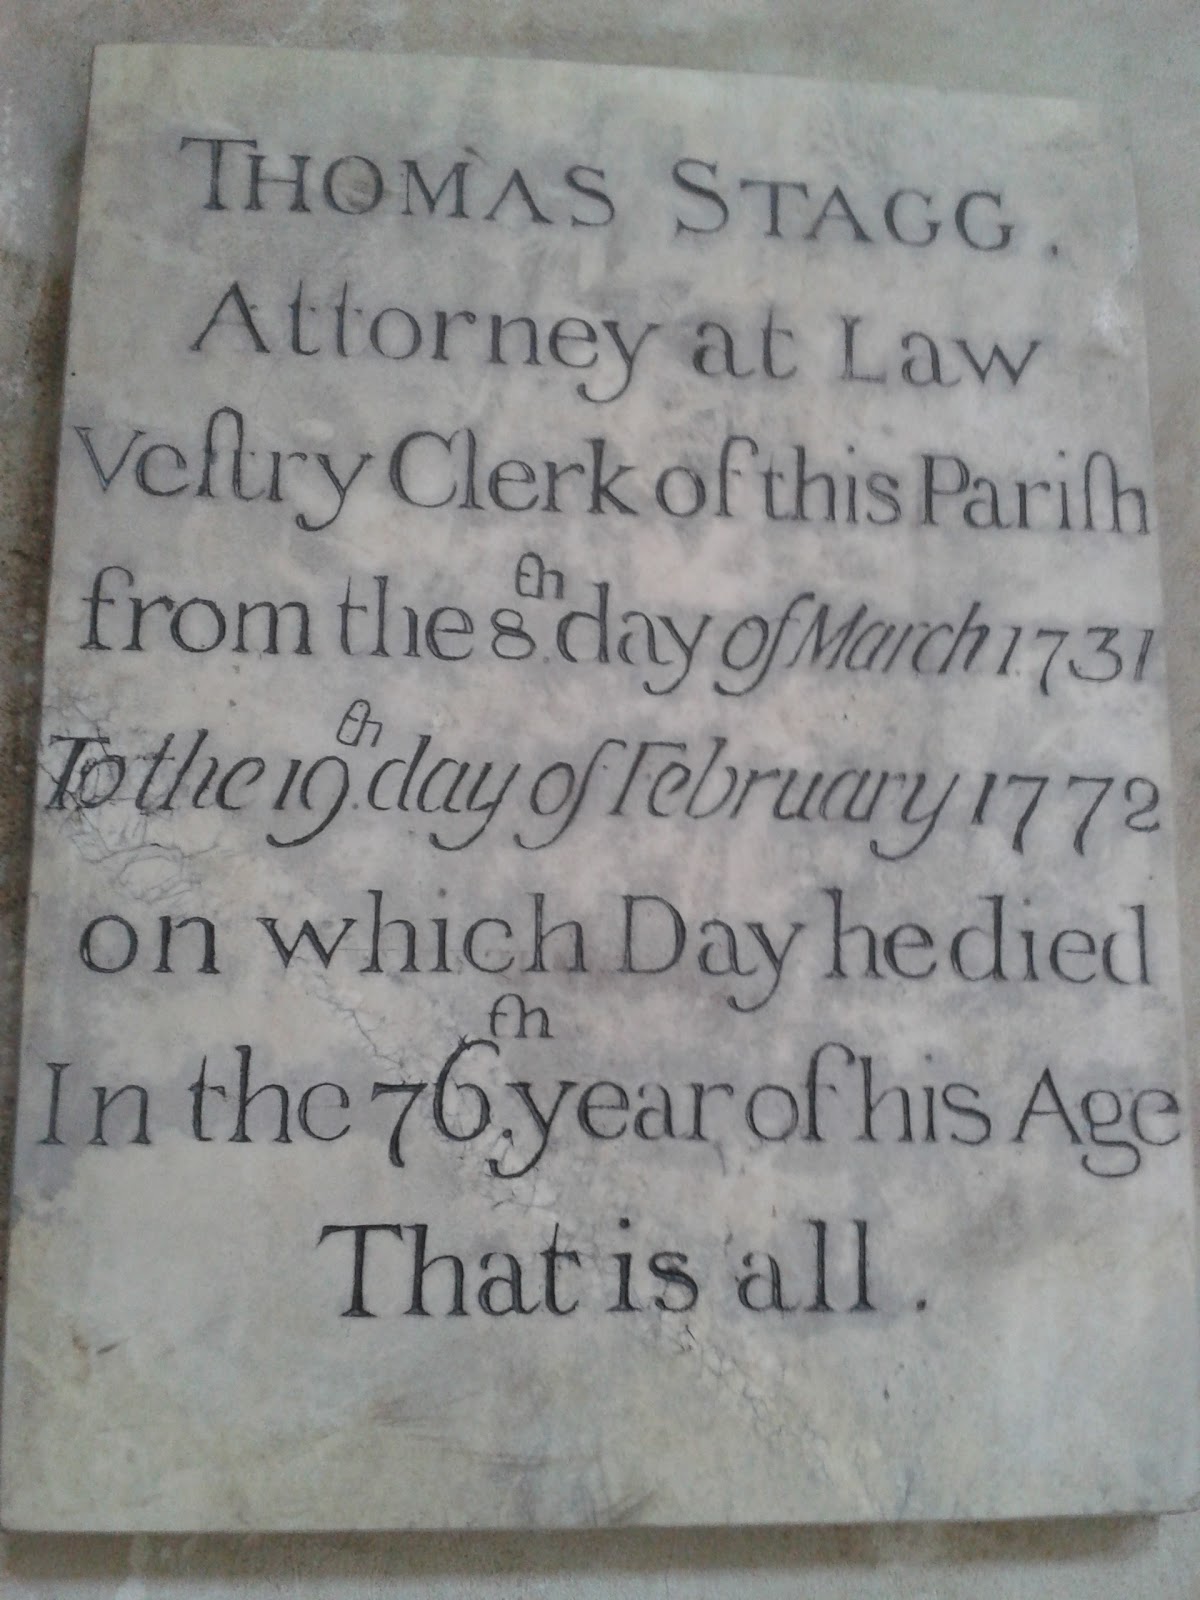 THOMAS STAGG.
Attorney at Law
Veſtry Clerk of this Pariſh
from the 8.th day of March 1731
To the 19.th day of February 1772
on which Day he died
In the 76.th year of his Age
That is all.